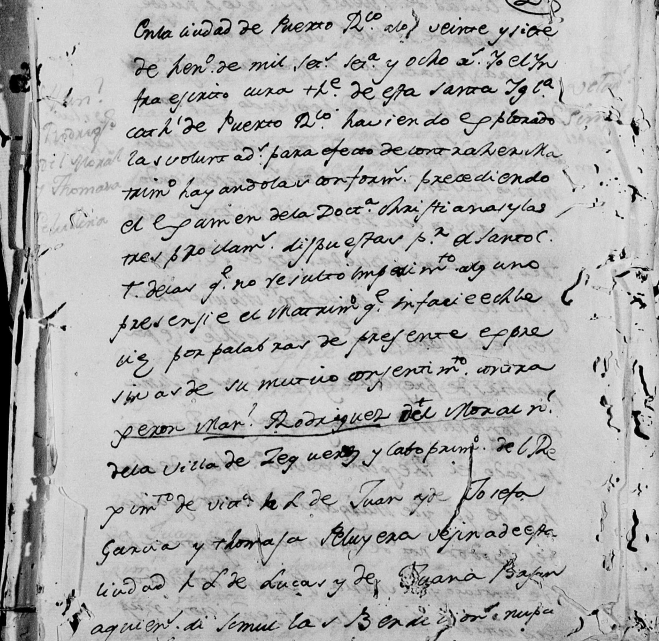 En la ciudad de Puerto Rco a los veinte y siete
de henº. de mil sets. seta. y ocho as. Yo el Yn
fraescrito cura the. de esta Santa Yglª.
cathl. de Puerto Rco haviendo explorado
las voluntads. para efecto de contraher Ma
trimº hayandolas conforms. precediendo
el examen dela Docta. christiana y las
tres proclams. dispuestas pr. el Santo C.
T. delas qe. no resulto impedimto alguno
presensie el Matrimº qe. infacie eclle
por palabras de presente expre
sivas de su mutuo consentimto. contra
xeron Manl. Rodriguez del Moral nl.
dela villa de y cabo primº. del Re
ximto de victª h L de Juan y de Josefa
Garcia y Thomasa Cluyera vesina de esta
ciudad h L de Lucas y de Juana
aquiens. di simul las Bendicions. nupci
Manl.
Rodrigz
del Moral
y Thomasa